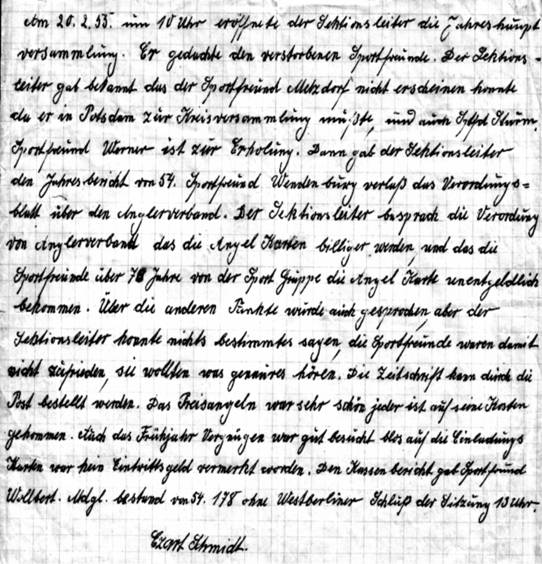 Am 20.2.55. um 10 Uhr eröffnete der Sektionsleiter die Jahreshaupt
versammlung. Er gedachte den verstorbenen Sportfreunde. Der Sektions-
leiter gab bekannt das der Sportfreund Metzdorf nicht erscheinen konnte
da er in Potsdam zur Kreisversammlung mußte, und auch Spfrd Sturm.
Sportfreund Werner ist zur Erholung. Dann gab der Sektionsleiter
den Jahresbericht von 54. Sportfreund Wendenburg verlaß das Verordungs=
blatt über den Anglerverband. Der Sektionsleiter besprach die Verordung
von Anglerverband das die Angel Karten billiger werden, und das die
Sportfreunde über 70 Jahre von der Sport Gruppe die Angel Karte unentgeldlich
bekommen. Über die anderen Punkte wurde auch gesprochen aber der
Sektionsleiter konnte nichts bestimmtes sagen, die Sportfreunde waren damit
nicht zufrieden, sie wollten was genaures hören. Die Zeitschrift kann durch die
Post bestellt werden. Das Preisangeln war sehr schön jeder ist auf seine Kosten
gekommen. Auch das Frühjahr Vergnügen war gut besucht blos auf die Einladungs
Karten war kein Eintrittsgeld vermerkt worden. Den Kassenbericht gab Sportfreund
Wollbert. Mdgl. bestand von 54. 178 ohne Westberliner Schluß der Sitzung 13 Uhr.
Schmidt.